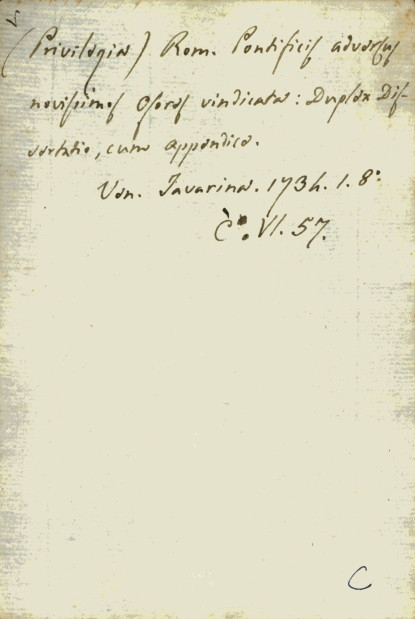 (Privilegia) Rom. Pontificis adversus
novissimos Osores vindicata: Duplex Dis-
sertatio, cum Appendice.
Ven. Tavarina. 1734. 1. 8°
C°. VI. 57.
C